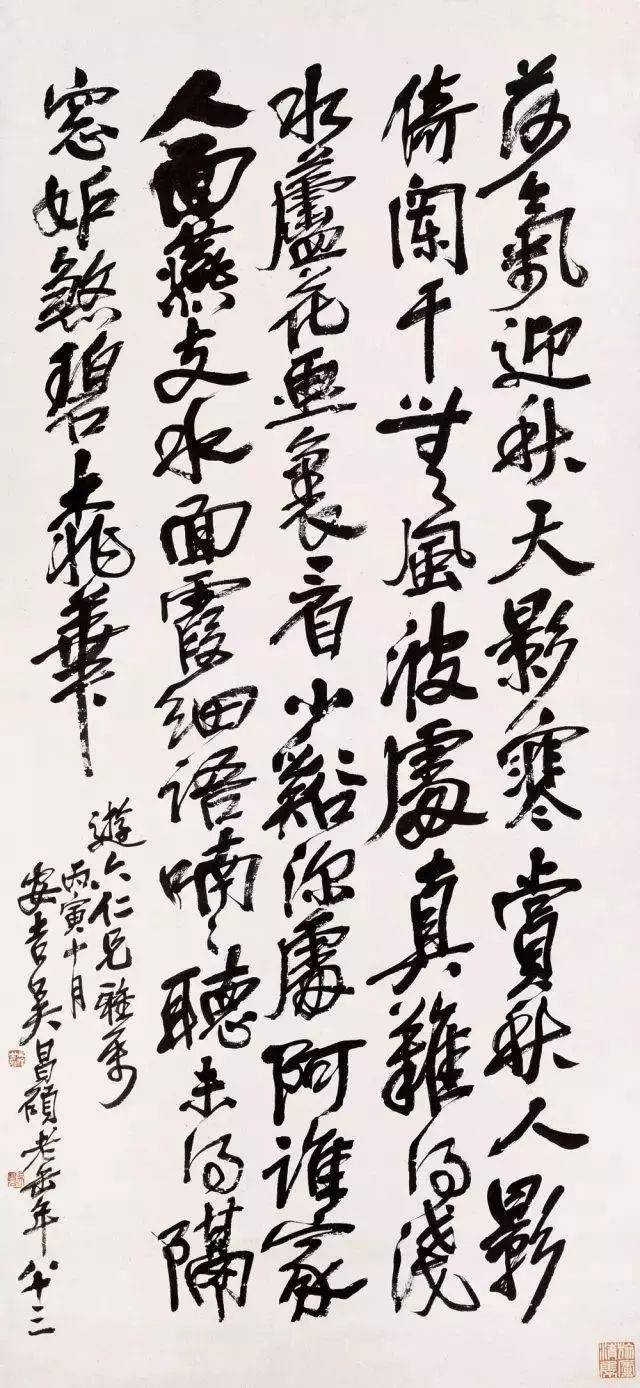 荷氣迎秋天影寒賞秋人影
倚闌干無風波處真難得淺
水蘆花畫裏看小谿深處阿誰家
人面燕支水面霞細語喃喃聽未得隔
窗妒煞碧桃華
遊六仁兄雅屬
丙寅十月
安吉吳昌碩老缶年八十三